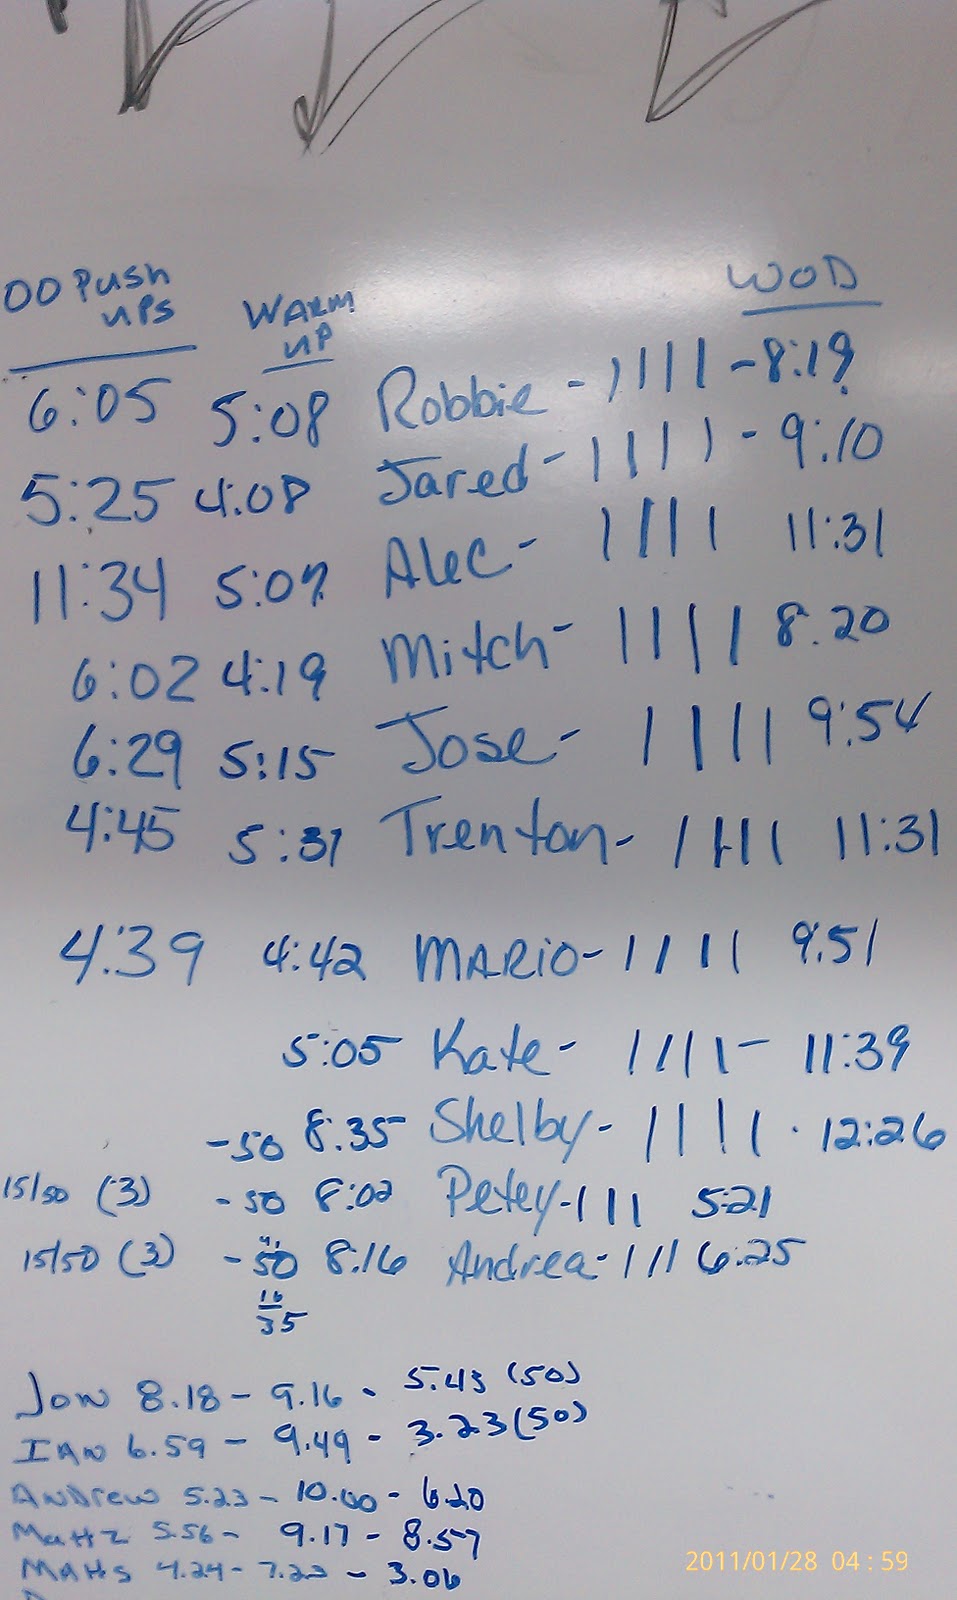 00 Push ups WARM UP WOD
6:05 5:08 Robbie - | | | | - 8:19
5:25 4:08 Jared - | | | | - 9:10
11:34 5:07 Alec - | | | | 11:31
6:02 4:19 Mitch - | | | | 8.20
6:29 5:15 Jose - | | | | 9:54
4:45 5:31 Trenton - | | | | 11:31
4:39 4:42 MARIO - | | | | 9:51
5:05 Kate - | | | | - 11:39
-50 8:35 Shelby - | | | | . 12:26
15/50 (3) -50 8:02 Petey - | | | 5:21
15/50 (3) -50 8:16 Andrea - | | | 6:25
35
Jon 8.18 - 9.16 - 5.43 (50)
IAN 6.59 - 9.49 - 3.23 (50)
Andrew 5.23 - 10.00 - 6.20
Matt 2 5.56 - 9.17 - 8.57
4.24 - 7.22 - 3.06
2011/01/28 04:59